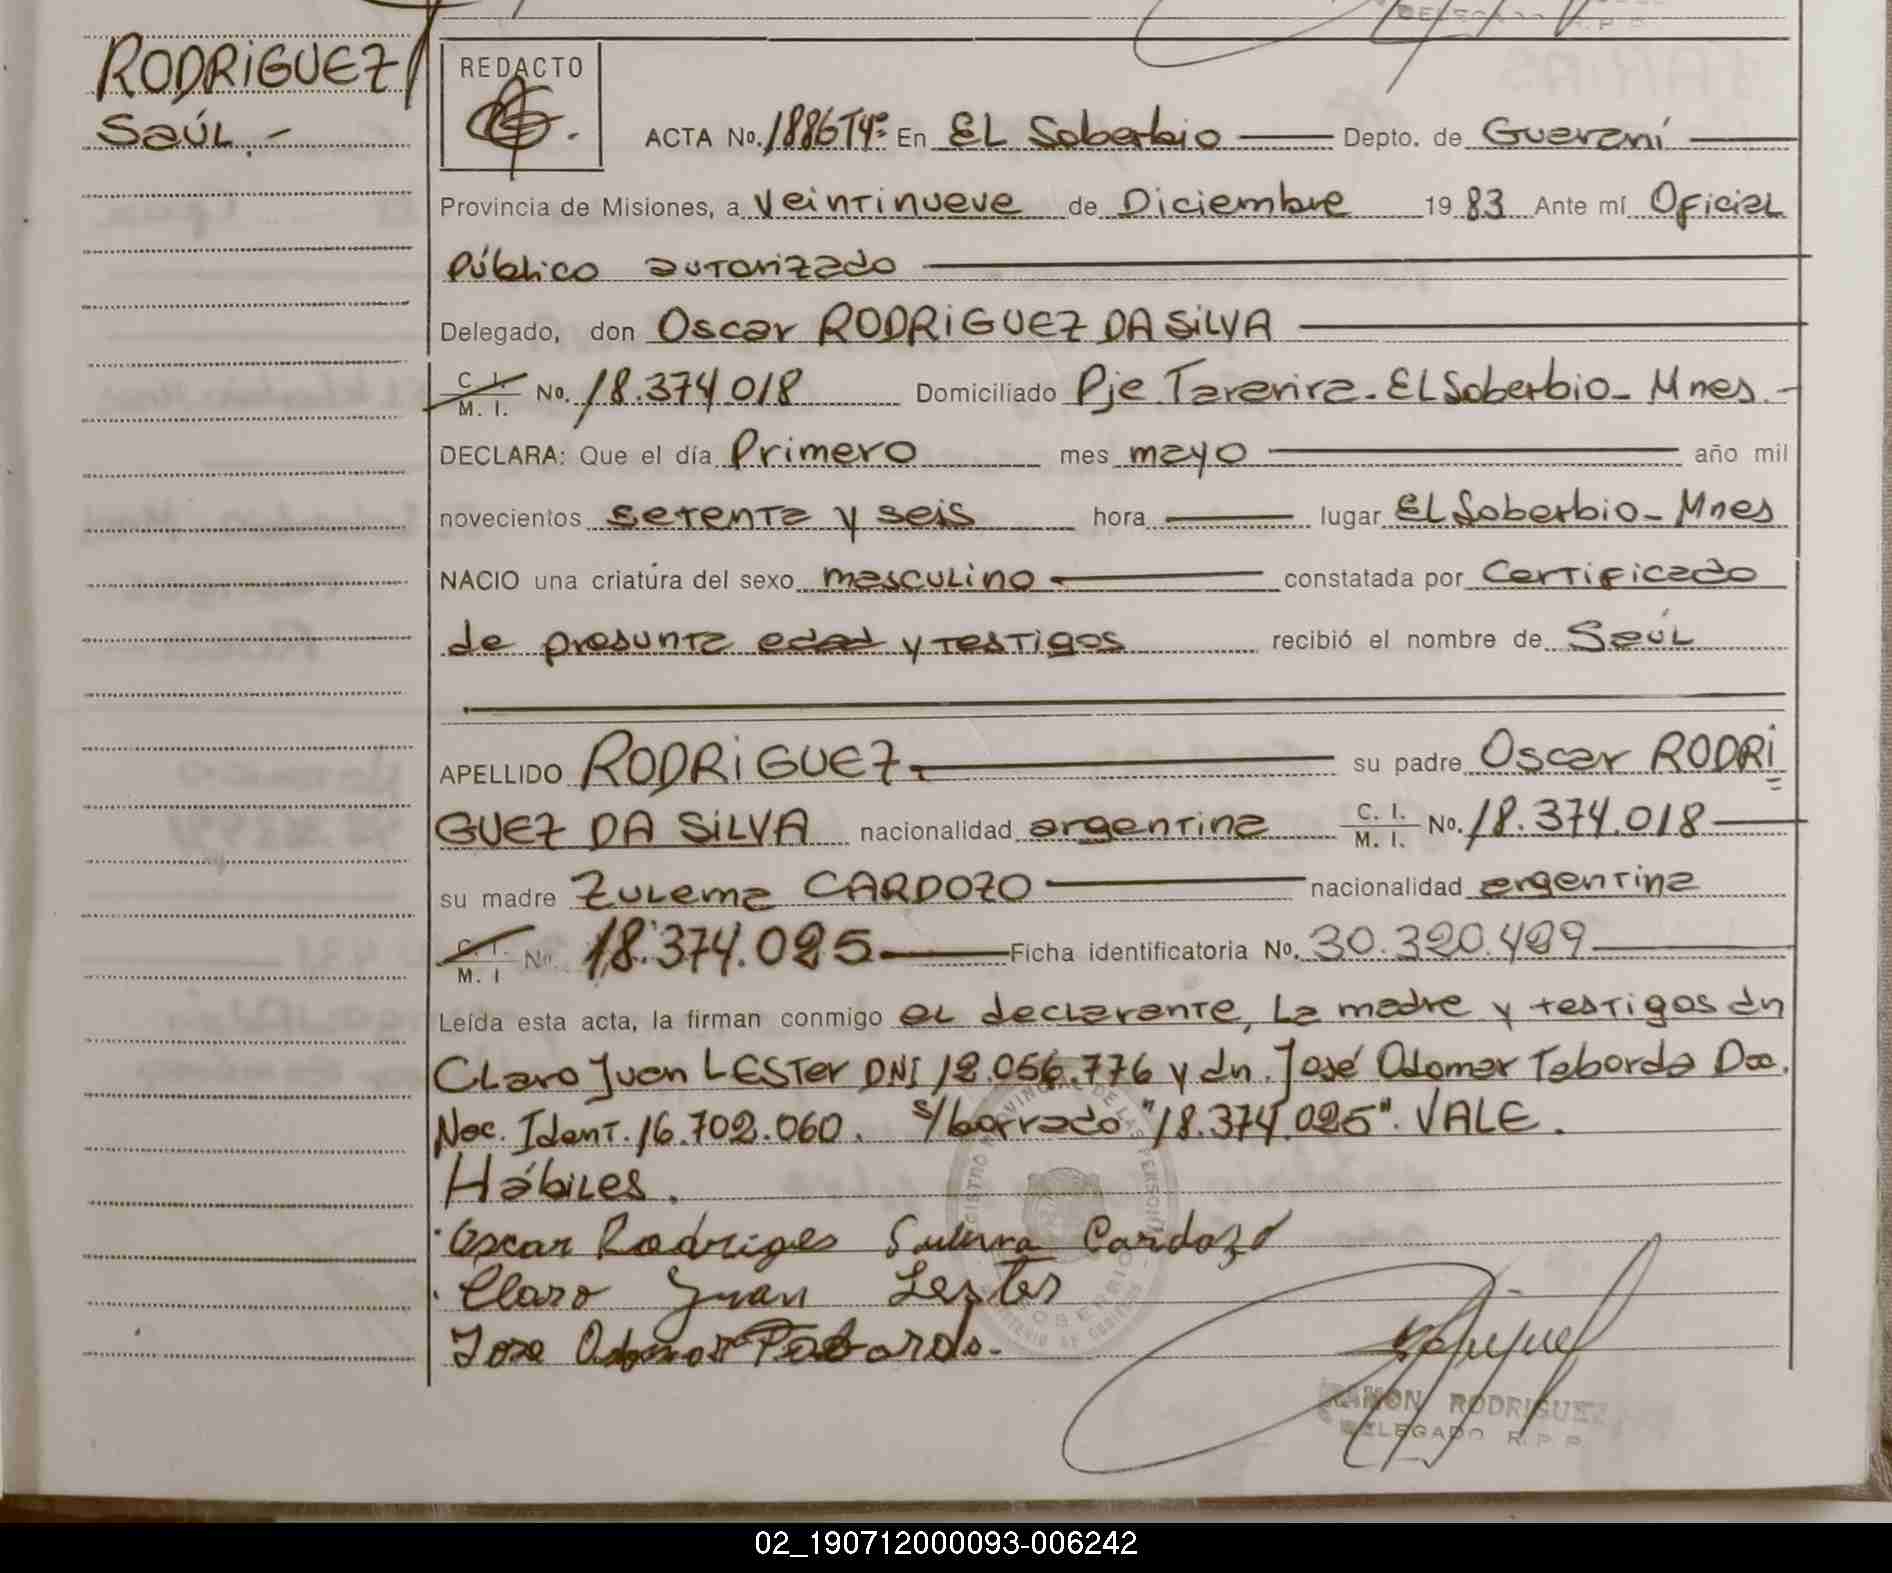 RODRIGUEZ
SAÚL.-
REDACTO
ACTA No. 1886 Tº 4º En EL Soberbio Depto. de Guaraní
Provincia de Misiones, a Veintinueve de Diciembre 19 83 Ante mí Oficial
Público autorizado
Delegado, don Oscar RODRIGUEZ DA SILVA
C. I. M. I. No. 18.374.018 Domiciliado Pje Tararira-EL Soberbio-Mnes.-
DECLARA: Que el día Primero mes mayo año mil
novecientos setenta y seis hora lugar EL Soberbio-Mnes
NACIO una criatura del sexo masculino constatada por Certificado
de presunta edad y testigos recibió el nombre de SAÚL
APELLIDO RODRIGUEZ.- su padre Oscar RODRI
GUEZ DA SILVA nacionalidad argentina C. I. M. I. No. 18.374.018
su madre Zulema CARDOZO nacionalidad argentina
C. I. M. I No. 18.374.025 Ficha identificatoria No. 30.320.429
Leída esta acta, la firman conmigo el declarante, la madre y testigos dn
Claro Juan LESTER DNI 12.056.776 y dn. José Odomar Taborda Doc.
Nac. Ident. 16.702.060. s/borrado "18.374.025". VALE.
Hábiles.
Oscar Rodriges Sulema Cardozo
Claro Juan Lester
Jose Odomar Taborda.
RAMON RODRIGUEZ
DELEGADO R. P. P.
02_190712000093-006242